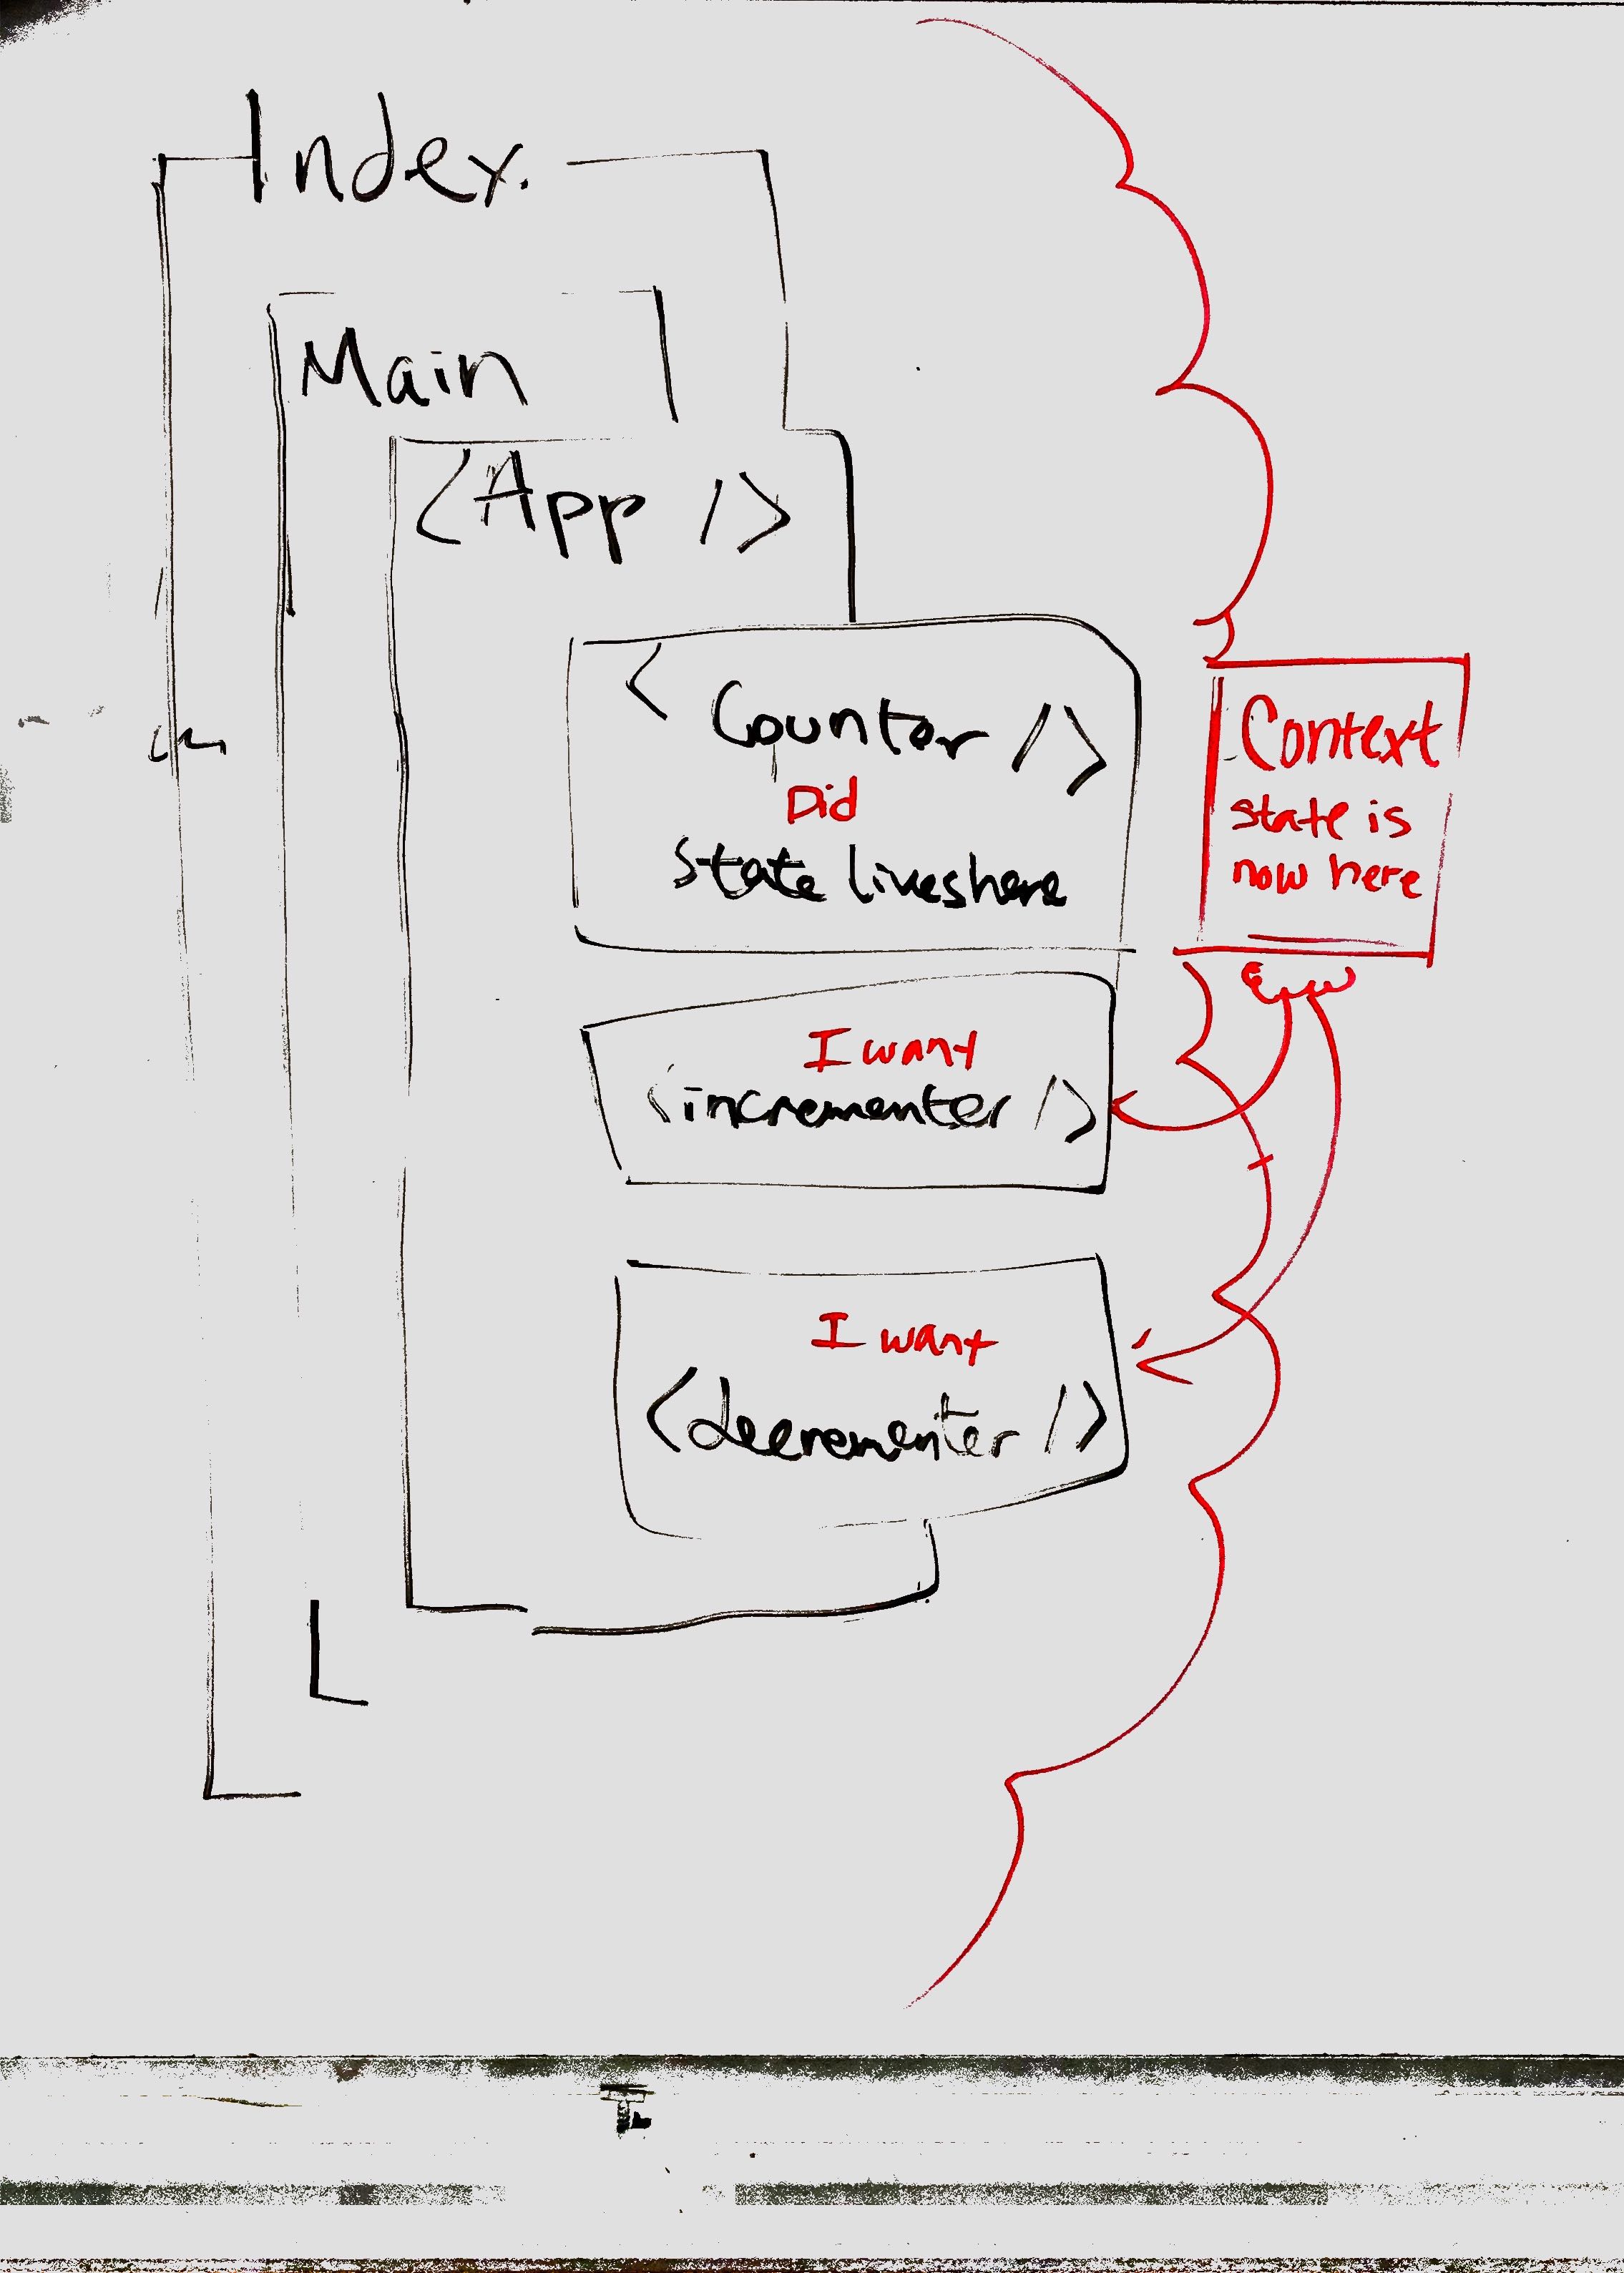 Index.
Main
<App />
<Counter />
Did
state lives here
Context
state is
now here
I want
<incrementer />
I want
<decrementer />